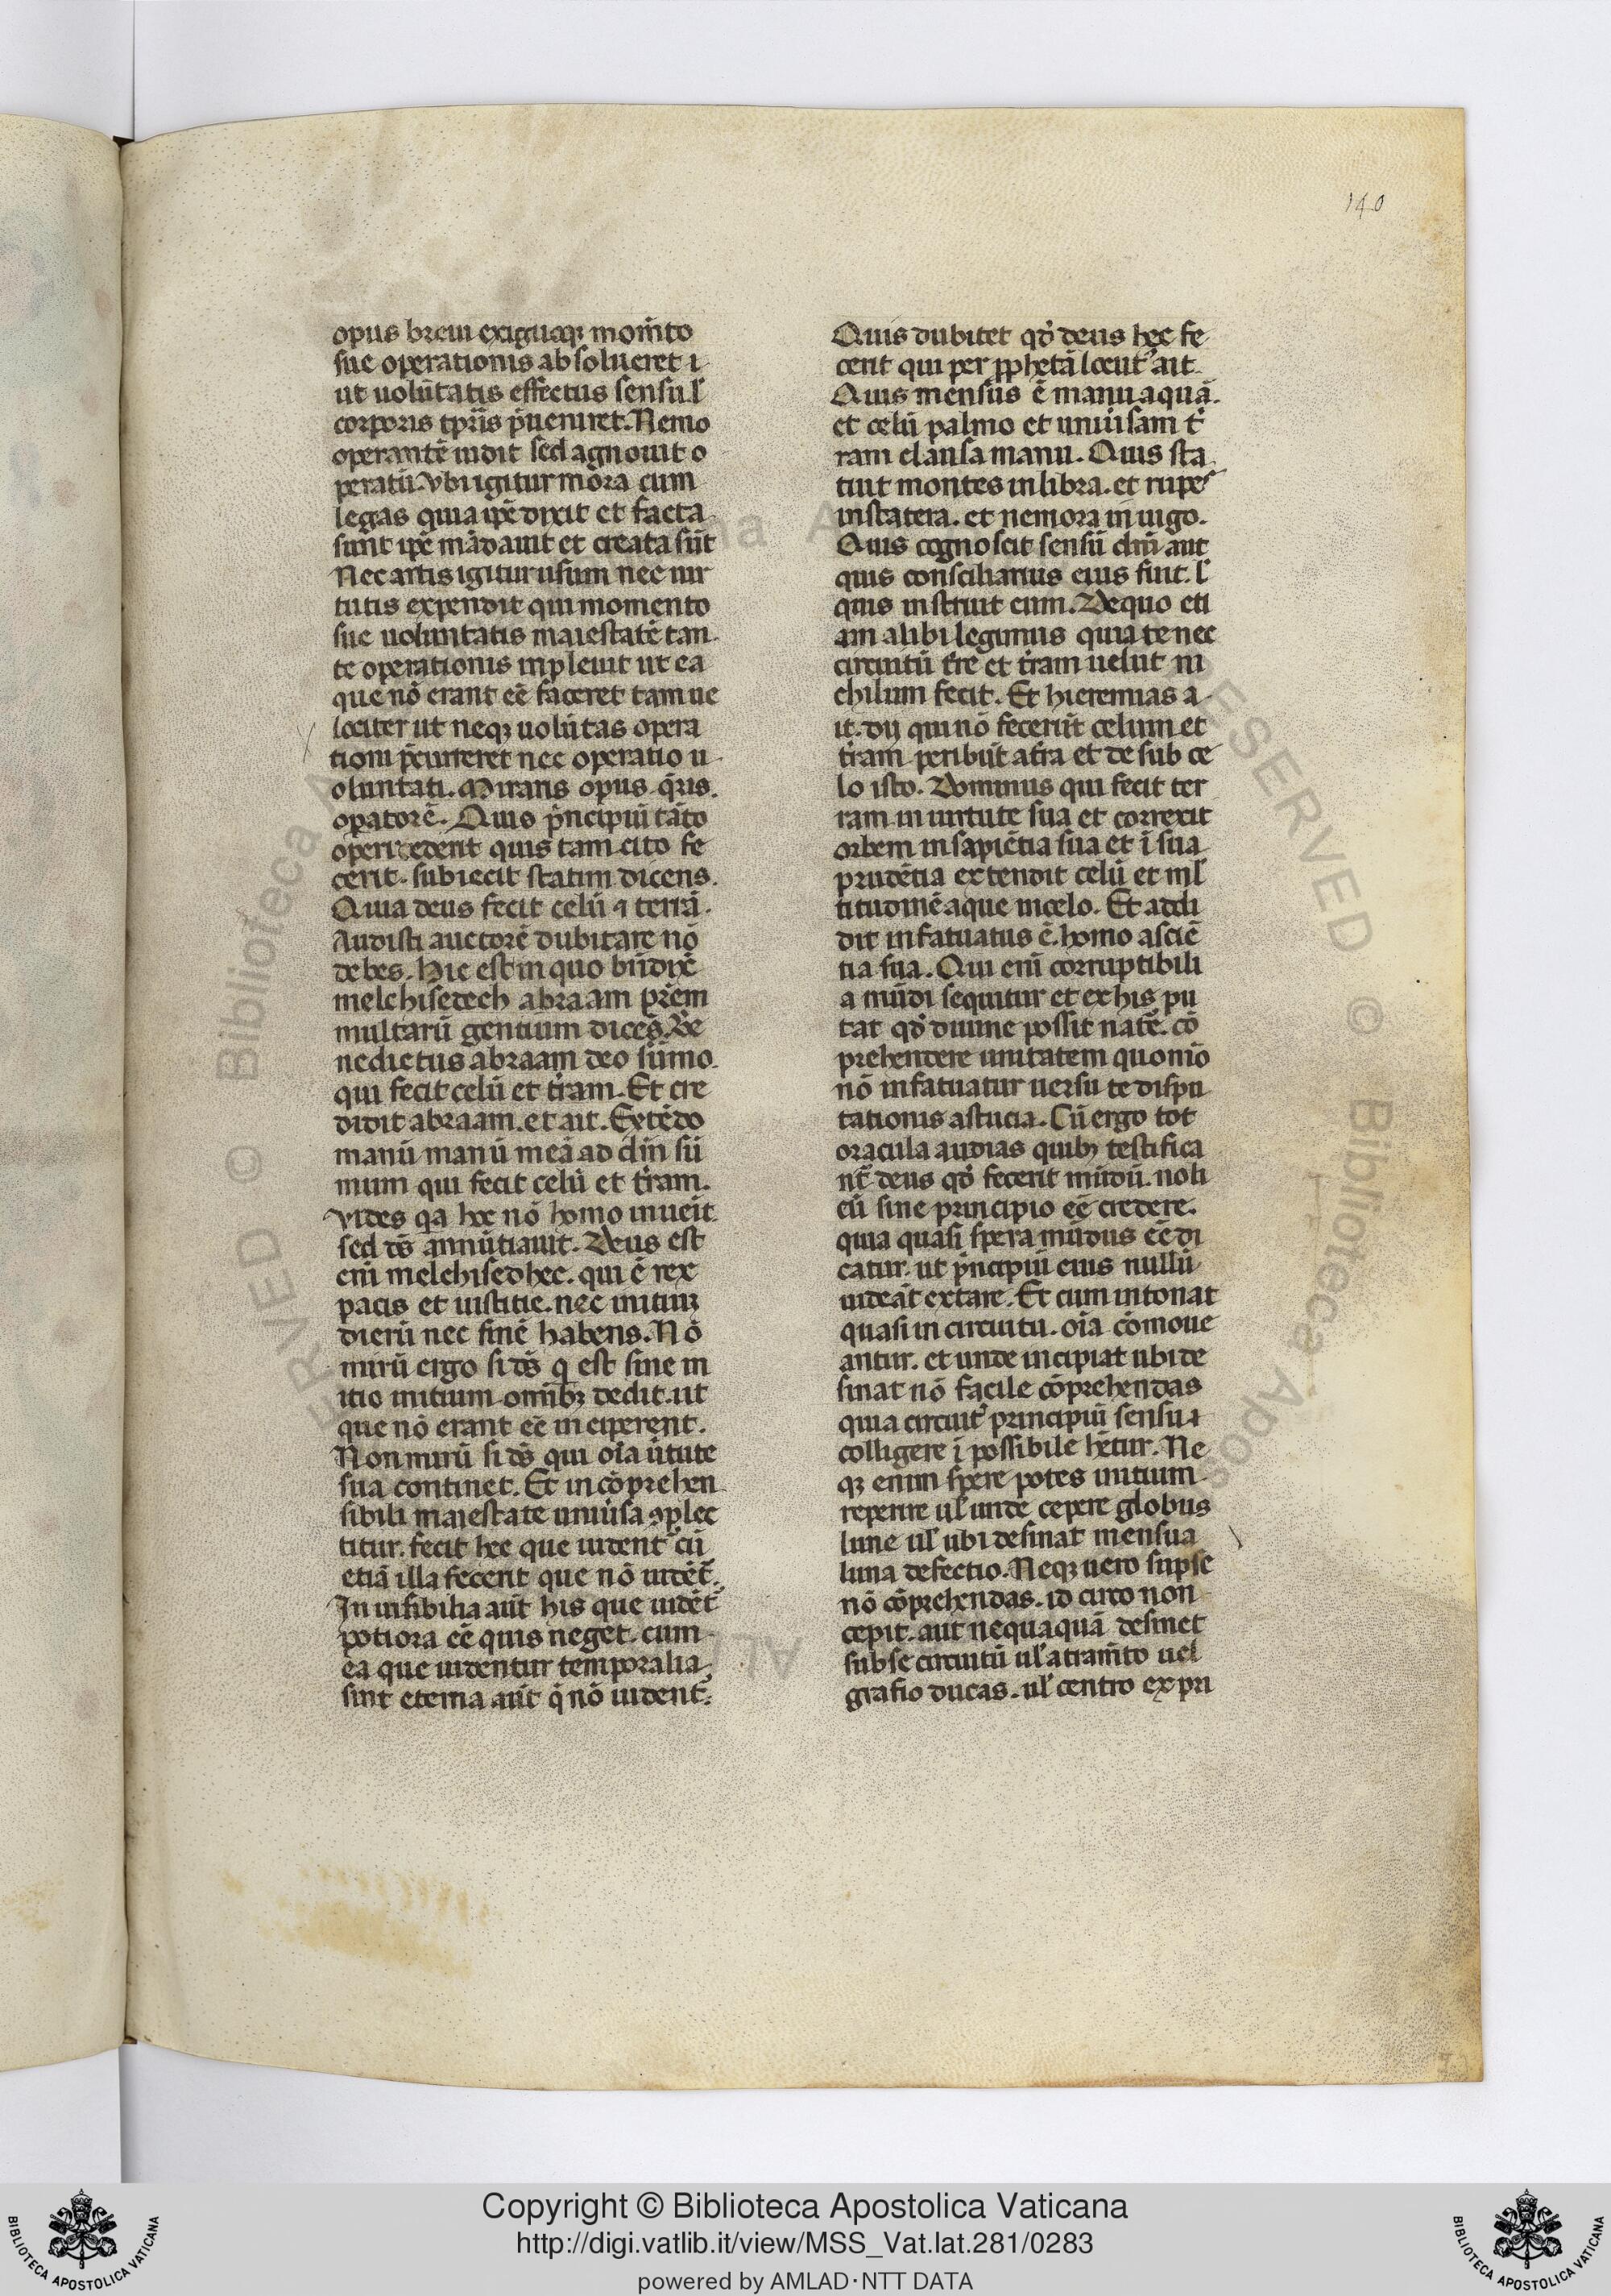 140
opus breui exiguoq; mom̄to
sue operationis absolueret i
ut uolūtatis effectus sensu l̓
corporis tp̄ris p̄ueniret. Nemo
operantē uidit sed agnouit o
peratū. vbi igitur mora cum
legas quia ip̄e dixit et facta
sunt ip̄e mādauit et creata sūt
Nec artis igitur usum nec uir
tutis expendit qui momento
sue uoluntatis maiestatē tan
te operationis inpleuit ut ea
que nō erant eē faceret tam ue
lociter ut neq; uolūtas opera
tioni p̄curreret nec operatio u
oluntati. Miraris opus q̄ris
opatorē. Quis p̄ncipiū tāto
operi dederit quis tam cito fe
cerit. subiecit statim dicens.
Quia deus fecit celū ⁊ terrā.
Audisti auctorē dubitare nō
debes. Hic est in quo bn̄dix̄
melchisedech abraam pr̄em
multarū gentium dicēs. Be
nedictus abraam deo sūmo
qui fecit celū et t̄ram. Et cre
didit abraam. et ait. Extēdo
manū manū meā ad dn̄m sū
mum qui fecit celū et t̄ram.
vides qa hoc nō homo inueīt
sed ds̄ annūtiauit. Deus est
eni melchisedhec. qui ē rex
pacis et iustitie. nec initiuz
dierū nec finē habens. Nō
mirū ergo si ds̄ q est sine in
itio initium omib; dedit. ut
que nō erant eē inciperent.
Non mirū si ds̄ qui oīa ūtute
sua continet. Et incōprehen
sibili maiestate uniūsa ꝯplec
titur. fecit hec que uident᷑ cū
etiā illa fecerit que nō uidēt᷑.
In uisibilia aūt his que uidēt᷑
potiora eē quis neget. cum
ea que uidentur temporalia
sint eterna aūt q̄ nō uident᷑.
Quis dubitet qd̓ deus hec fe
cerit qui per ꝓphetā locut᷑ ait
Quis mensus ē manu aquā.
et celū palmo et uniūsam t̄
ram clausa manu. Quis sta
tuit montes in libra. et rupes
in statera. et nemora in iugo.
Quis cognoscit sensū dn̄i aut
quis consciliarius eius fuit. l̓
quis instruit eum. De quo eti
am alibi legimus quia tenec
circuitū t̄re et t̄ram uelut ni
chilum fecit. Et hieremias a
it. dij qui nō fecerūt celum et
t̄ram peribūt a t̄ra et de sub ce
lo isto. Dominus qui fecit ter
ram in uirtute sua et correxit
orbem in sapiētia sua et ī sua
prudētia extendit celū et ml̓
titudinē aque in celo. Et addi
dit infatuatus ē. homo a sciē
tia sua. Qui enī corruptibili
a mūdi sequitur et ex his pu
tat qd̓ diuine possit nat̄e. cō
prehendere unitatem quomō
nō infatuatur uersu te dispu
tationis astucia. Cū ergo tot
oracula audias quib; testifica
nt̄ deus qd̓ fecerit mūdū. noli
cū sine principio eē credere.
quia quasi spera mūdus eē di
catur. ut p̄ncipiū eius nullū
uideāt extare. Et cum intonat
quasi in circuitu. oīa cōmoue
antur. et unde incipiat ubi de
sinat nō facile cōprehendas
quia circuit᷑ principiū sensu ⁊
colligere ī possibile h̄etur. Ne
q; enim spere potes initium
reperire ul̓ unde cepere globus
lune ul̓ ubi desinat mensua
luna defectio. Neq; uero sup se
nō cōprehendas. id circo non
cepit. aut nequaquā desinet
sub se circuitū ul̓ atram̄to uel
grafio ducas. ul̓ centro expri
Copyright © Biblioteca Apostolica Vaticana
http://digi.vatlib.it/view/MSS_Vat.lat.281/0283
powered by AMLAD·NTT DATA
BIBLIOTECA APOSTOLICA VATICANA
BIBLIOTECA APOSTOLICA VATICANA